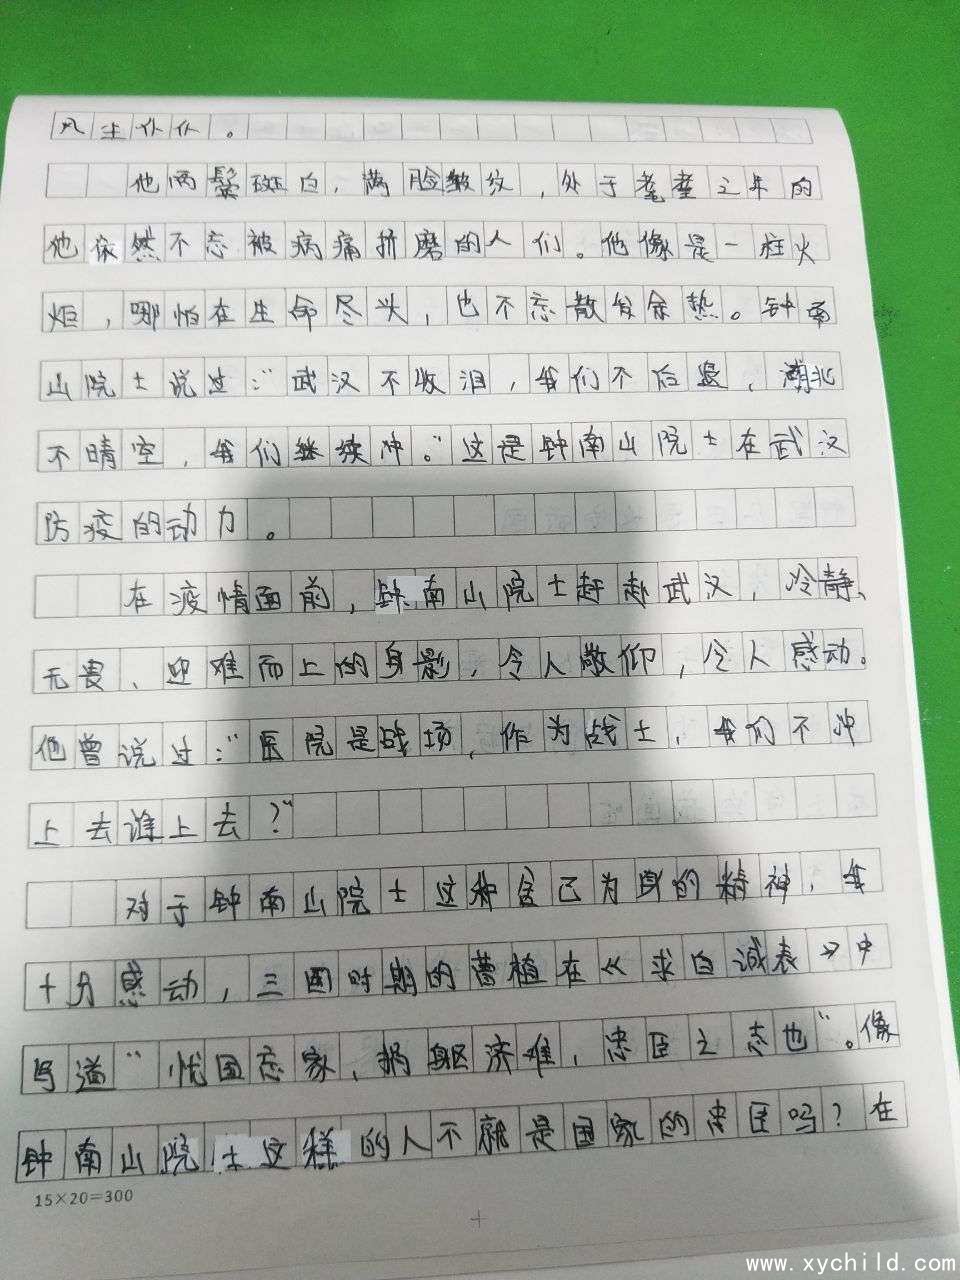 风尘仆仆。
他两鬓斑白,满脸皱纹,处于耄耋之年的
他依然不忘被病痛折磨的人们。他像是一柱火
炬,哪怕在生命尽头,也不忘散发余热。钟南
山院士说过:“武汉不收泪,我们不后退,湖北
不晴空,我们继续冲。”这是钟南山院士在武汉
防疫的动力。
在疫情面前,钟南山院士赶赴武汉,冷静、
无畏、迎难而上的身影,令人敬仰,令人感动。
他曾说过:“医院是战场,作为战士,我们不冲
上去谁上去?”
对于钟南山院士这种舍己为身的精神,我
十分感动,三国时期的曹植在《求自诚表》中
写道“忧国忘家,捐躯济难,忠臣之志也”。像
钟南山院士这样的人不就是国家的忠臣吗?在
15×20=300
www.xychild.com